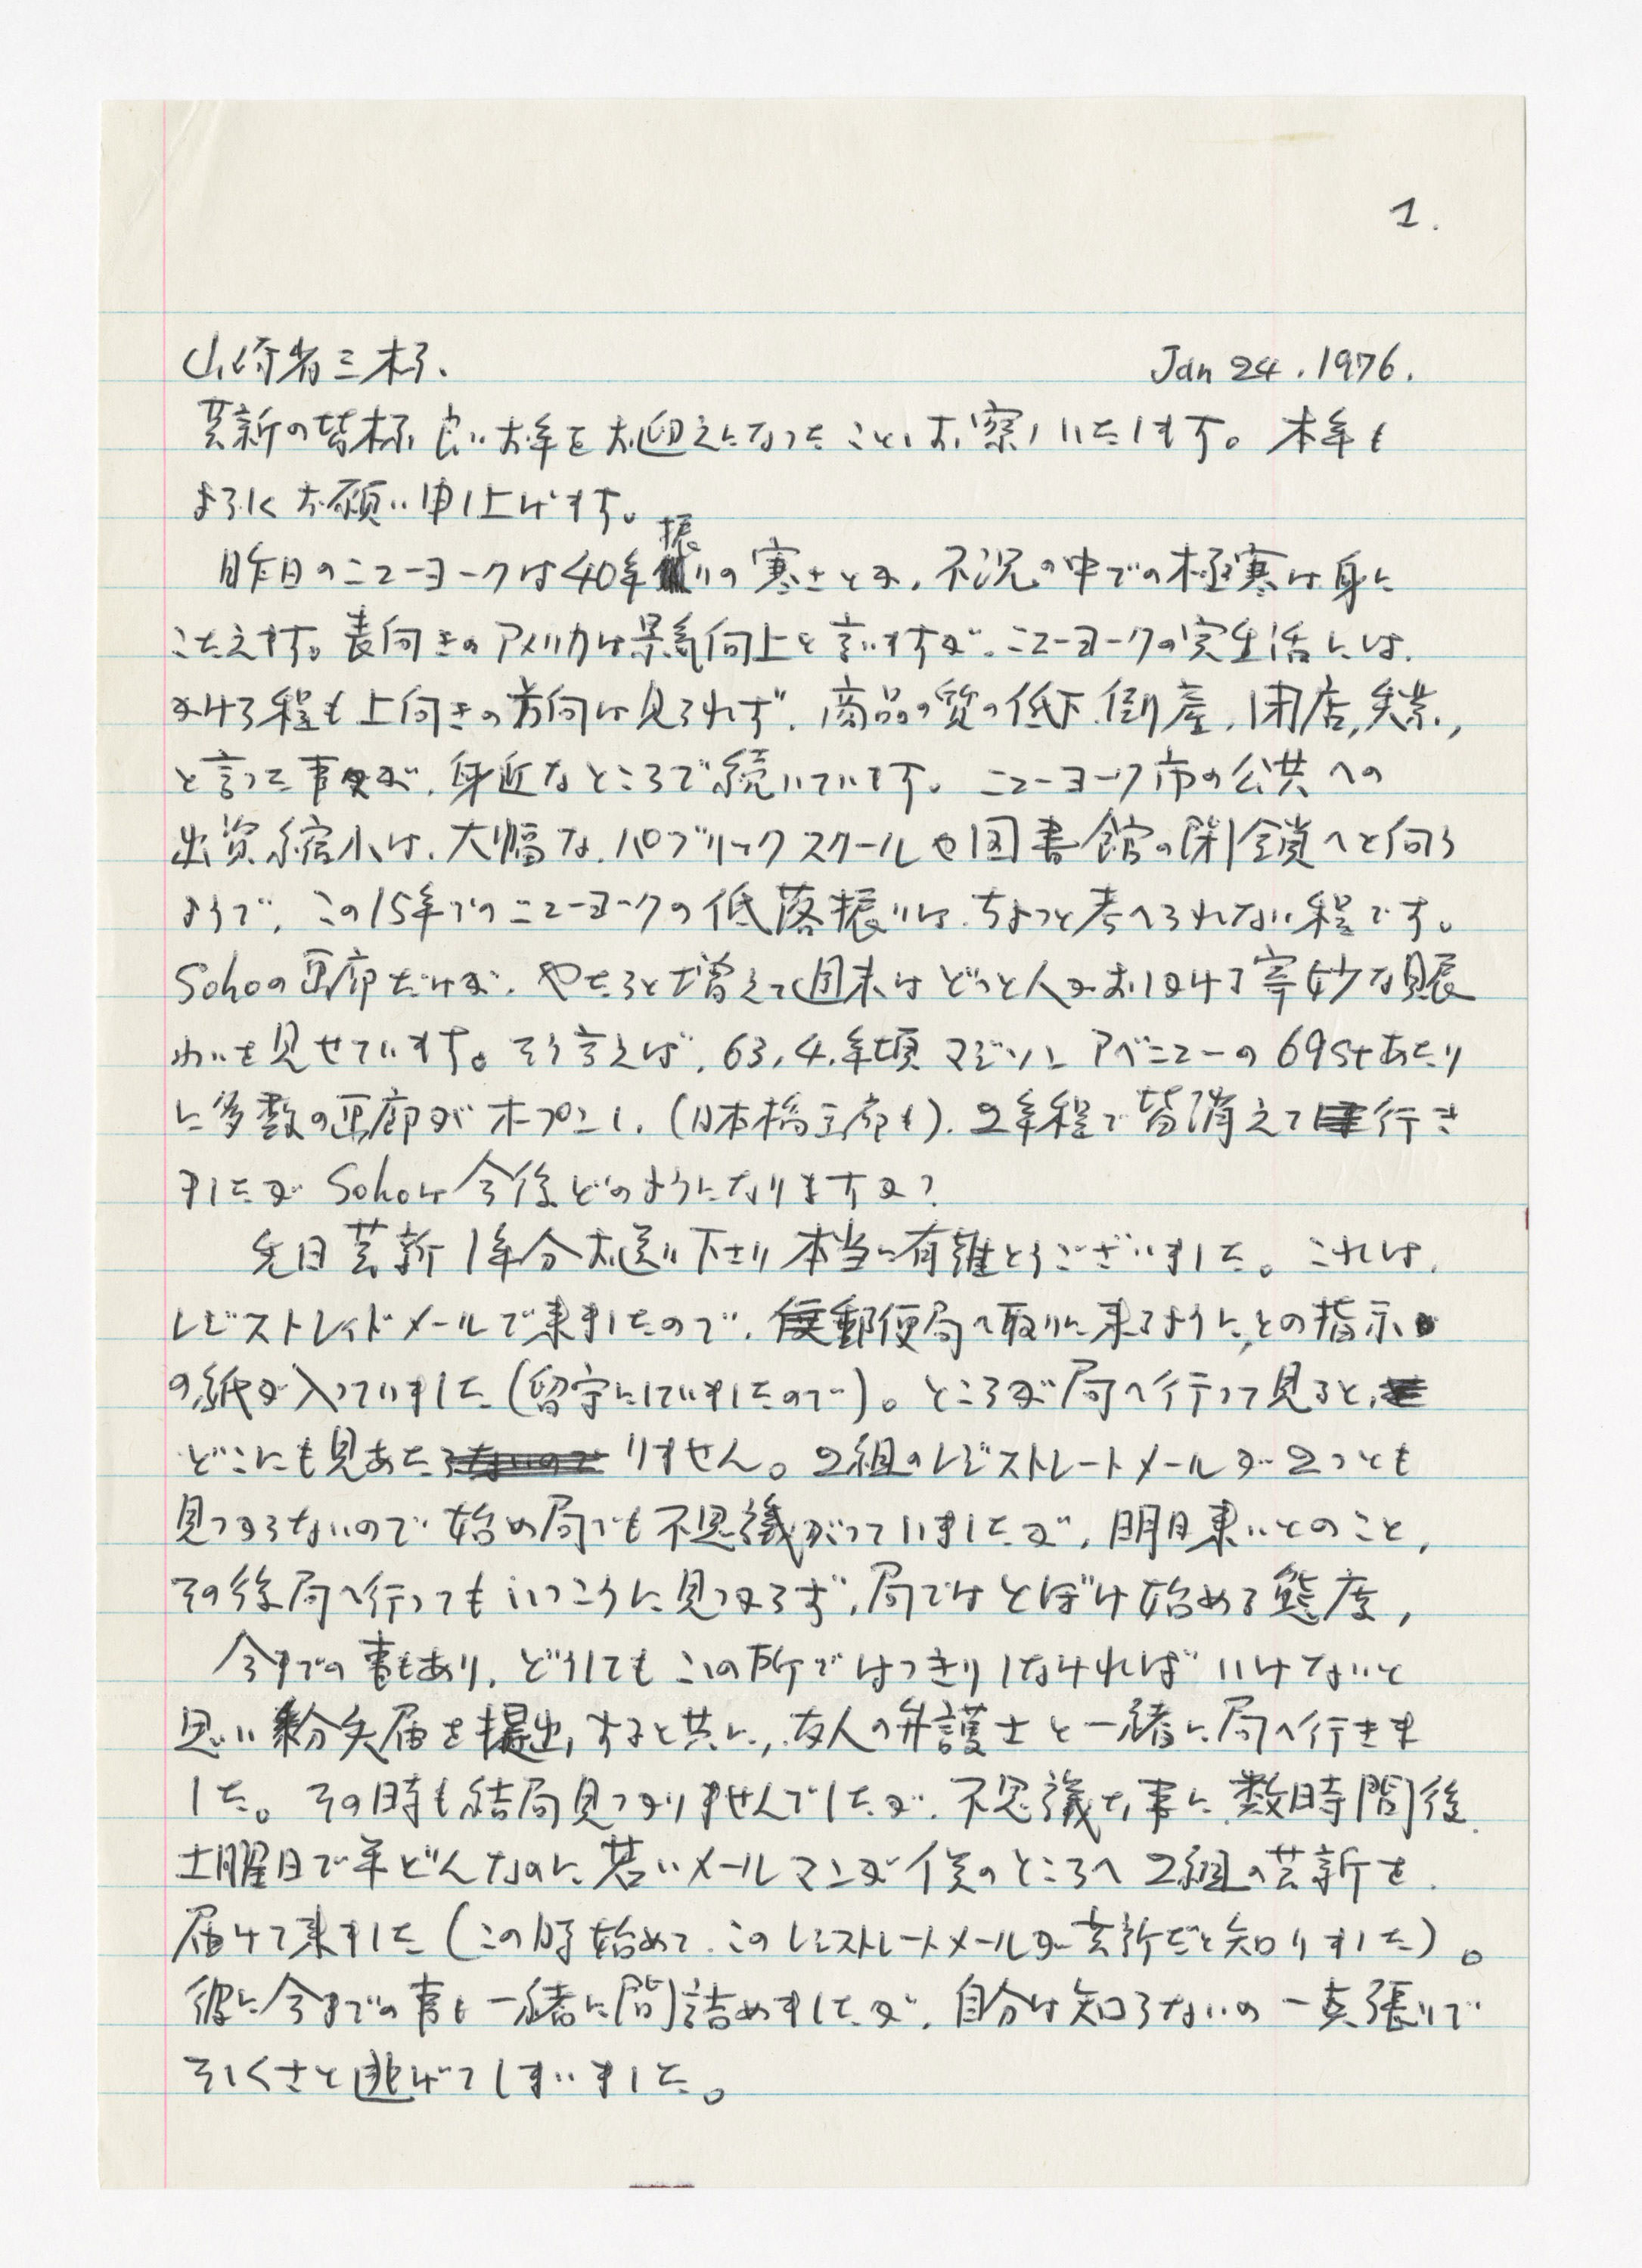 1.
山崎省三様.
Jan 24.1976.
芸新の皆様 良いお年をお迎えになったことゝお察しいたします。本年も
よろしくお願い申し上げます。
昨日のニューヨークは40年振りの寒さとか、不況の中での極寒は身に
こたえます。表向きのアメリカは景気向上と言いますが、ニューヨークの実生活には、
かける程も上向きの方向は見られず、商品の質の低下、倒産、閉店、失業、
と言った事が、身近なところで続いています。ニューヨーク市の公共への
出資縮小は、大幅な、パブリックスクールや図書館の閉鎖へと向う
ようで、この15年でのニューヨークの低落振りは、ちょっと考へられない程です。
Sohoの画廊だけが、やたらと増えて週末はどっと人がおしかけ奇妙な賑
わいを見せています。そう言えば、63,4,年頃マジソンアベニューの69stあたり
に多数の画廊がオープンし、(日本橋画廊も)、2年程で皆消えて行き
ましたがSohoは今後どのようになりますか?
先日芸新1年分お送り下さり本当に有難とうございました。これは、
レジストレイドメールで来ましたので、郵便局へ取りに来るように、との指示
の紙が入っていました(留守にしていましたので)。ところが局へ行って見ると、
どこにも見あたりません。2組のレジストレートメールが2つとも
見つからないので始め局でも不思議がっていましたが、明日来いとのこと、
その後局へ行ってもいっこうに見つからず、局ではとぼけ始める態度、
今までの事もあり、どうしてもこの所ではっきりしなければいけないと
思い紛失届を提出すると共に、友人の弁護士と一緒に局へ行きま
した。その時も結局見つかりませんでしたが、不思議な事に、数時間後、
土曜日で半どんなのに若いメールマンが僕のところへ2組の芸新を、
届けて来ました(この時始めて、このレジストレートメールが芸新だと知りました)。
彼に今までの事も一緒に問詰めましたが、自分は知らないの一点張りで
そしくさと逃げてしまいました。